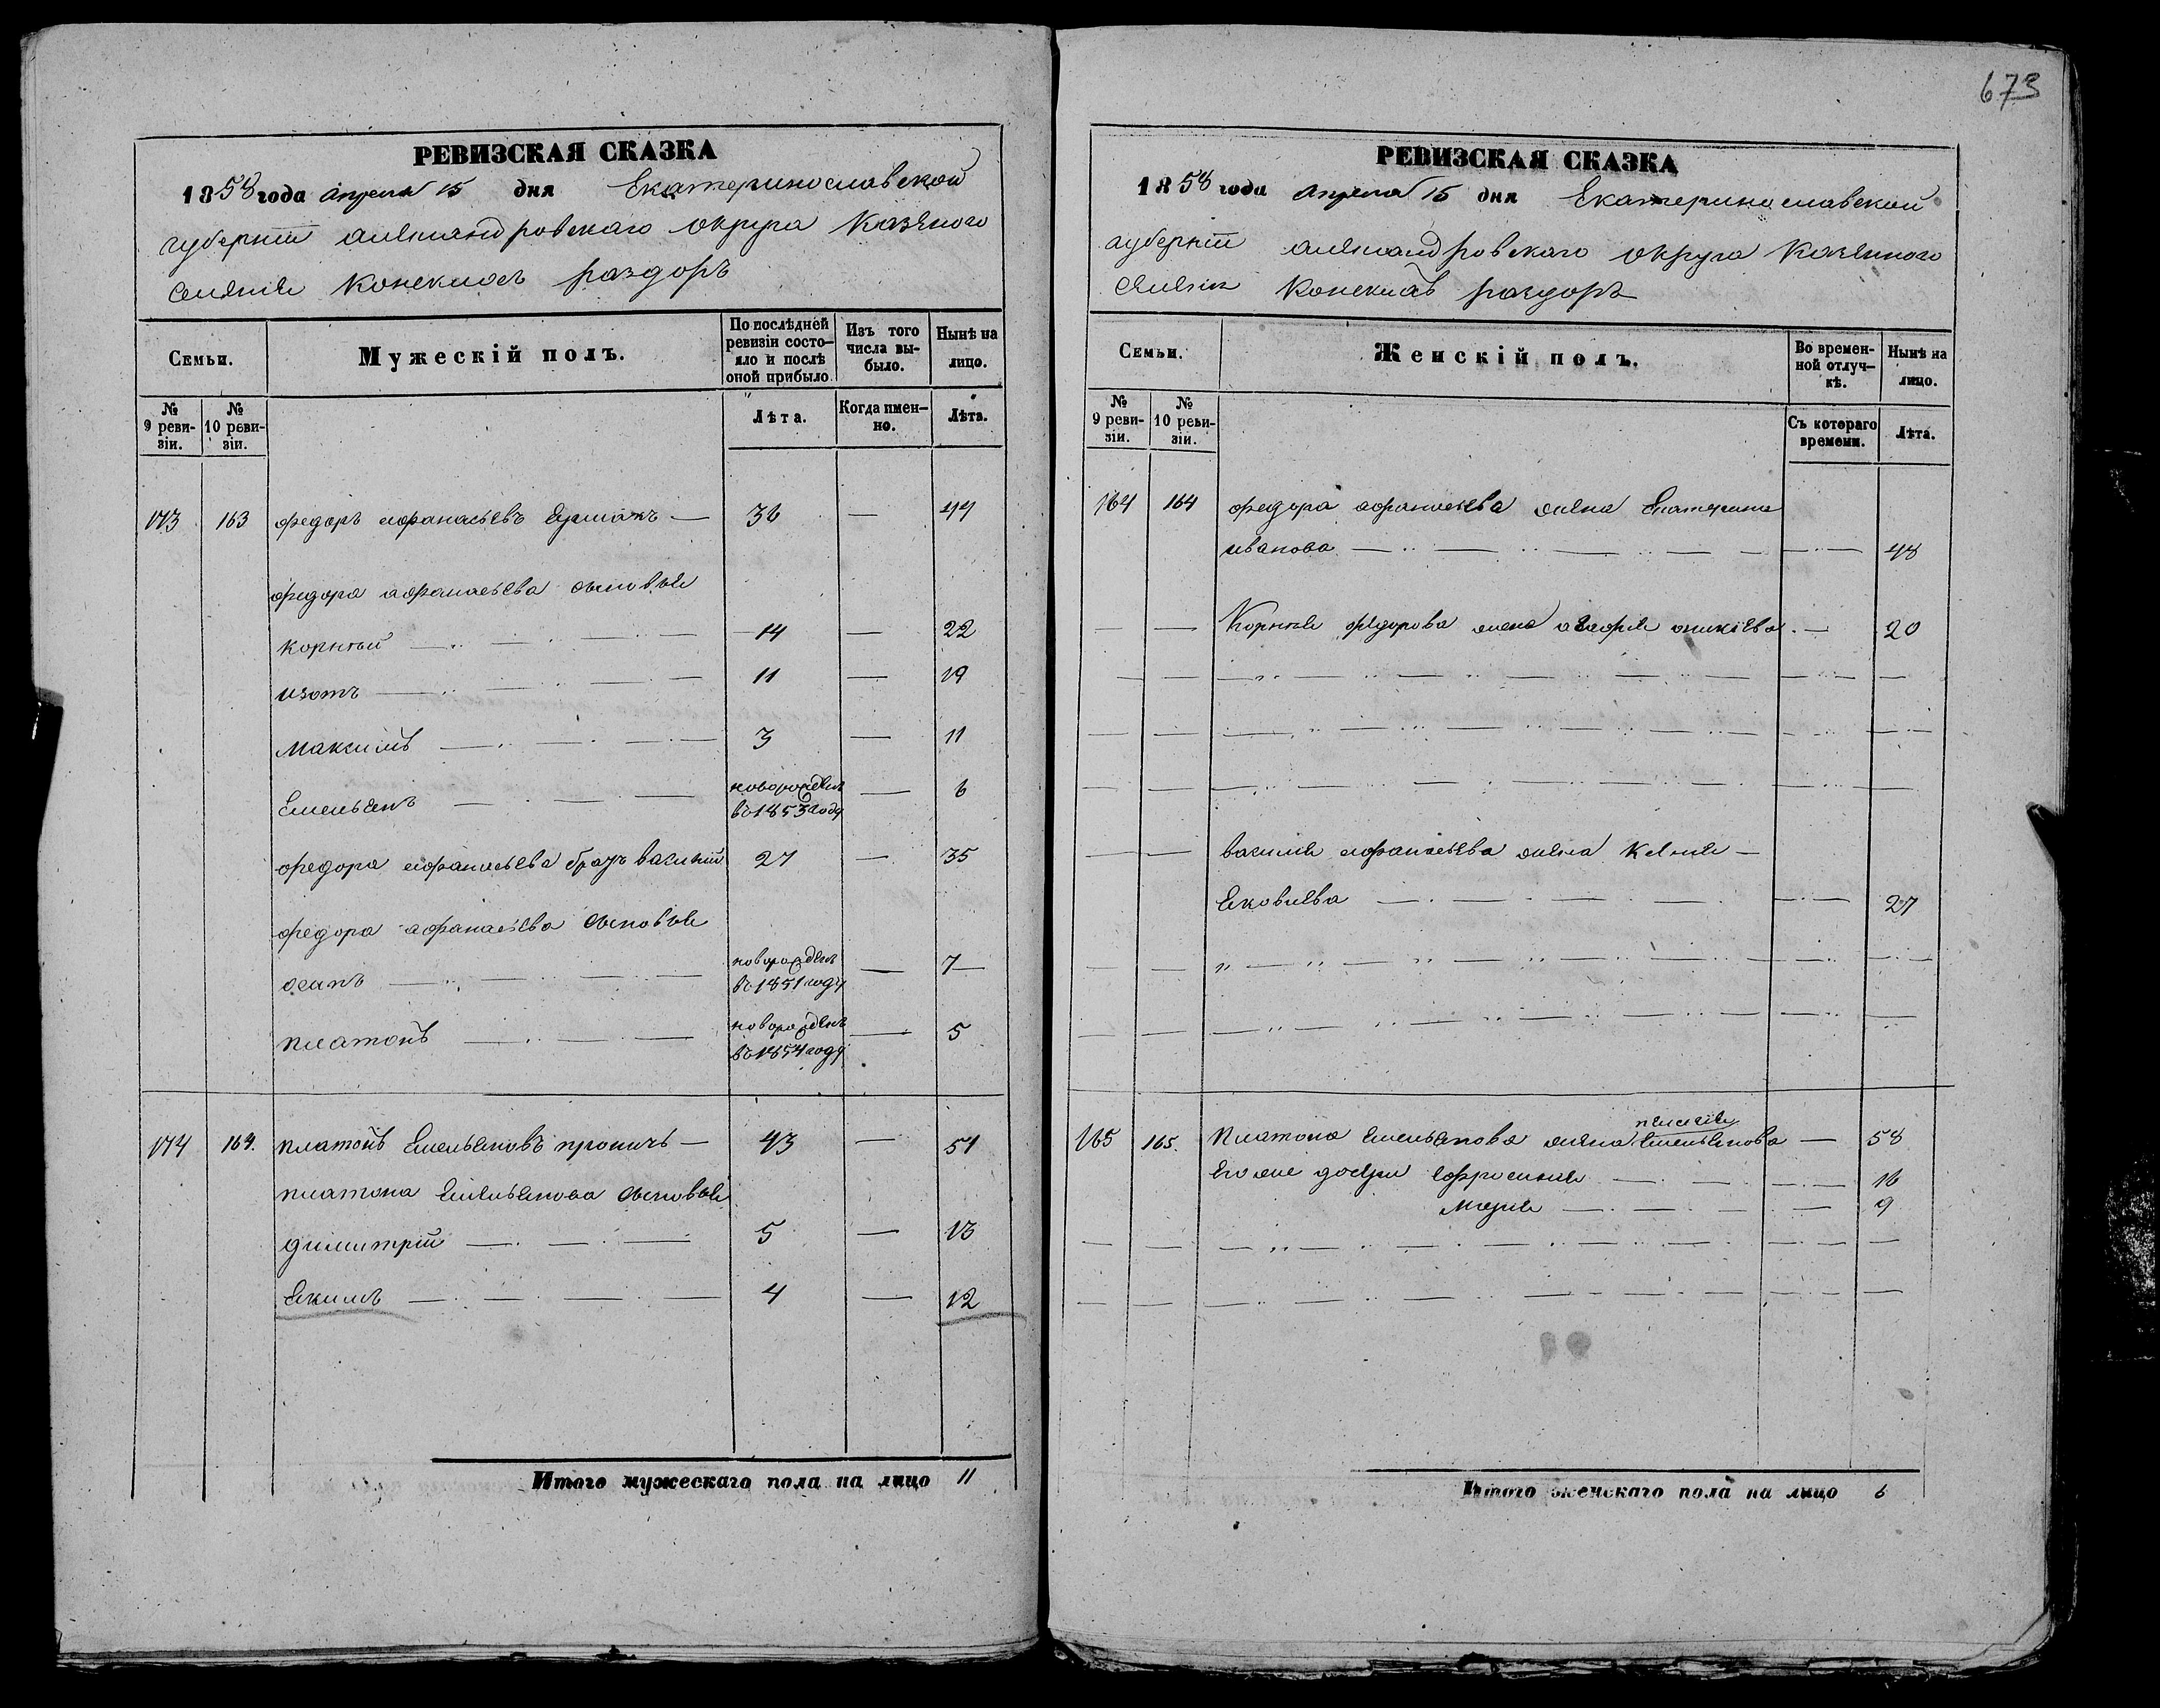 673
РЕВИЗСКАЯ СКАЗКА
1858 года апреля 15 дня Екатеринославской
губернии александровскаго округа казенного
селения Конскихъ раздоръ
Семьи.
Мужескій полъ.
По послѣдней ревизіи состояло и послѣ оной прибыло
Изъ того числа выбыло.
Нынѣ на лицо.
№ 9 ревизіи.
№ 10 ревизіи.
Лѣта.
Когда именно.
Лѣта.
173 163 федоръ афанасьевъ Ермакъ — 36 — 44
федора афанасьева сыновья
корнѣй — 14 — 22
изотъ — 11 — 19
максимъ — 3 — 11
Емельянъ — новорожденъ въ 1853 году — 6
федора афанасьева братъ василій 27 — 35
федора афанасьева сыновья
осипъ — новорожденъ въ 1851 году — 7
платонъ — новорожденъ въ 1854 году — 5
174 164. платонъ Емельяновъ — 43 — 51
платона Емельянова сыновья
димитрій — 5 — 13
Екимъ — 4 — 12
Итого мужескаго пола на лицо 11
РЕВИЗСКАЯ СКАЗКА
1858 года апреля 15 дня Екатеринославской
губерніи александровскаго округа казенного
селения Конскихъ раздоръ
Семьи.
Женскій полъ.
Во временной отлучкѣ.
Нынѣ на лицо.
№ 9 ревизіи.
№ 10 ревизіи.
Съ котораго времени.
Лѣта.
164 164 федора афанасьева жена Екатерина
иванова — 48
Корнѣя федорова жена — 20
василия афанасьева жена Ксения —
Яковлева — 27
пелагея
165 165. Платона Емельянова жена Емельянова — 58
его же дочери Ефросиния — 16
Мария — 9
Итого женскаго пола на лицо 6